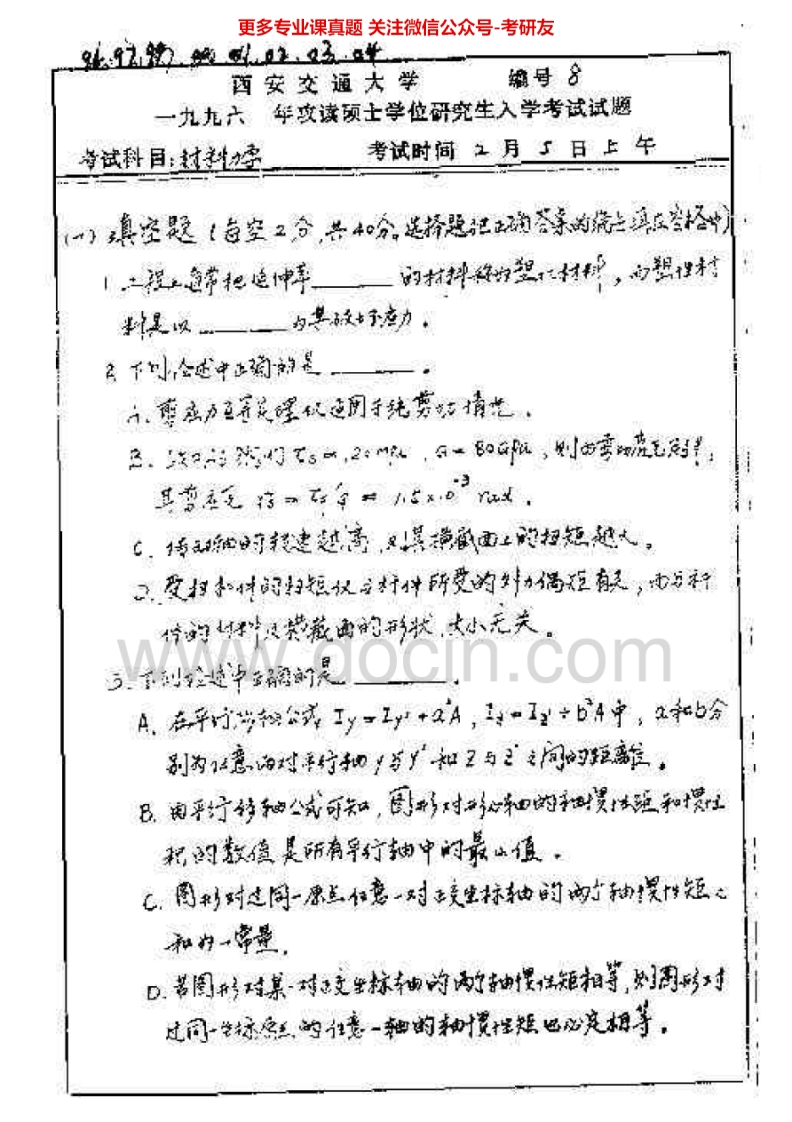 更多专业课真题 关注微信公众号-考研友
96.97.99 00 01.02.03.04
西安交通大学 编号 8
一九九六 年攻读硕士学位研究生入学考试试题
考试科目:材料力学 考试时间 2 月 5 日上午
(一) 填空题 (每空2分,共40分。选择题把正确答案的 填在空格中)
1. 工程上通常把延伸率______的材料称为塑性材料,而塑性材
料是以______为其 应力.
2. 下列论述中正确的是______.
A. 剪应力互等定理仅适用于纯剪切情况.
B. τs = 120 MPa, G = 80 GPa, 则
其剪应变 = 1.5×10⁻³ rad.
C. 传动轴的转速越高,则其横截面上的扭矩越大。
D. 受扭杆件的扭矩仅与杆件所受的外力偶矩有关,而与杆
件的材料及横截面的形状、大小无关。
www.docin.com
3. 下列论述中正确的是______.
A. 在平行移轴公式 Iy = Iy' + a²A, Iz = Iz' + b²A 中, a和b分
别为任意的对平行轴 y与y' 和 z与z' 之间的距离.
B. 由平行移轴公式可知,图形对形心轴的轴惯性矩和惯性
积的数值是所有平行轴中的最小值.
C. 图形对过同一原点任意一对正交坐标轴的两个轴惯性矩之
和为一常量.
D. 若图形对某一对正交坐标轴的两个轴惯性矩相等,则图形对
过同一坐标原点的任意一轴的轴惯性矩也必定相等.